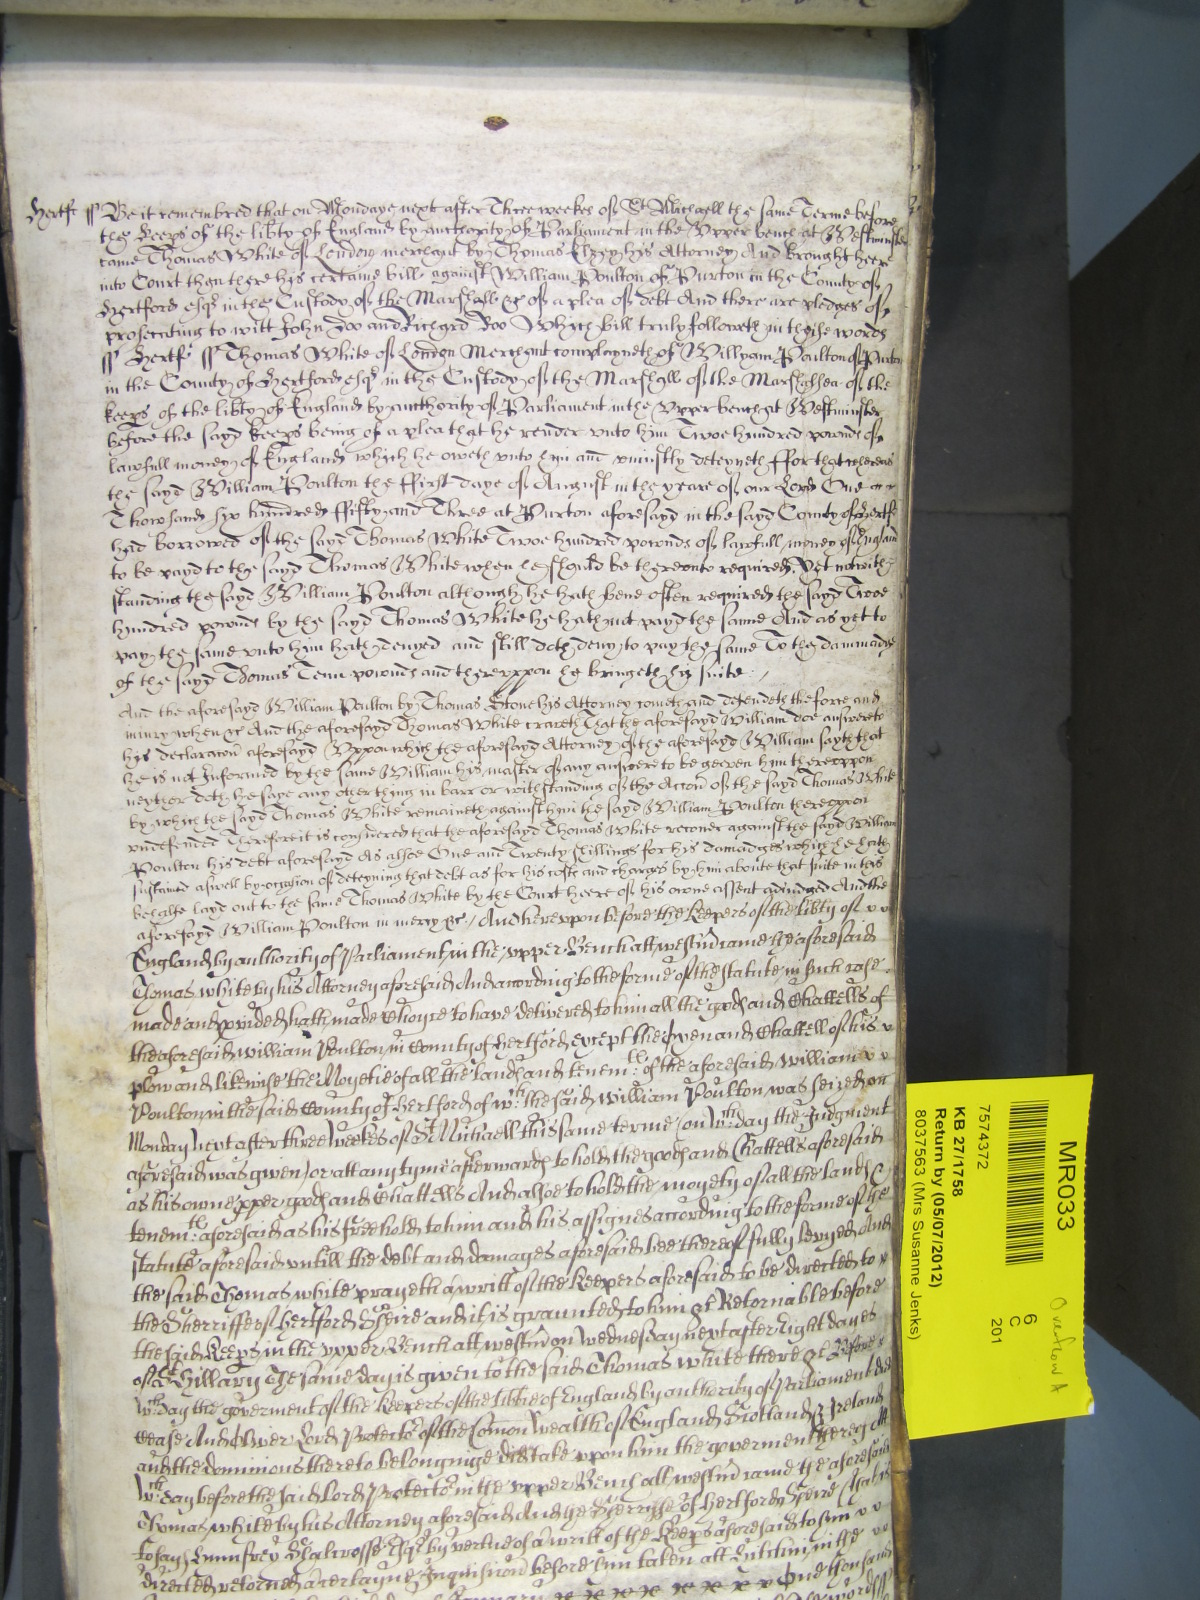 Hertf ss Be it remembred that on Mondaye next after Three weekes of St Michaell the same Terme before
the Keeps of the libty of England by authority of Parliament in the Upper bench at Westminster
came Thomas White of London merchant by Thomas his Attorney And brought heere
into Court then there his certaine bill against William Poulton of Purton in the County of
Hertford esqr in the Custody of the Marshall &c of a plea of debt And there are pledges of
prosecuting to witt John Doo and Richard Roo Which bill truly followeth in theise words
ss Hertf ss Thomas White of London Merchant complayneth of Willyam Poulton of Purton
in the County of Hertford esqr in the Custody of the Marshall of the Marshalsea of the
keeps of the libty of England by authority of Parliament in the Upper bench at Westminster
before the sayd keeps being of a plea that he render unto him Twoe hundred pownds of
lawfull money of England which he oweth unto him and uniustly deteyneth ffor that whereas
the sayd William Poulton the ffirst daye of August in the yeare of our Lord One
Thowsand six hundred ffifty and Three at Purton aforesayd in the sayd County of Hertf
had borrowed of the sayd Thomas White Twoe hundred pownds of lawfull money of England
to be payd to the sayd Thomas White when he should be thereunto required Yet notwith
standing the sayd William Poulton although he hath bene often required the sayd Twoe
hundred pownds by the sayd Thomas White he hath not payd the same And as yet to
pay the same unto him hath denyed and still doth deny to pay the same To the dammadge
of the sayd Thomas Tenn pownds and thereuppon he bringeth his suite
And the aforesayd William Poulton by Thomas Stone his Attorney cometh and defendeth the force and
iniury when &c And the aforesayd Thomas White craveth That the aforesayd William doe answere to
his declaracon aforesayd Uppon which the aforesayd Attorney of the aforesayd William sayth that
he is not Informed by the same William his master of any answere to be geeven him thereuppon
neyther doth he saye any other thing in barr or withstanding of the Accon of the sayd Thomas White
by which the sayd Thomas White remaineth against him the sayd William Poulton thereuppon
undefended Therefore it is considered that the aforesayd Thomas White recover against the sayd William
Poulton his debt aforesayd As alsoe One and Twenty shillings for his damadges which he hath
sustained aswell by occasion of deteyning that debt as for his costs and charges by him aboute that suite in this
behalfe layd out to the same Thomas White by the Court heere of his owne assent adiudged And the
aforesayd William Poulton in mercy &c / And hereuppon before the Keepers of the libty of
England by authority of Parliament in the upper Bench att westm came the aforesaid
Thomas white by his Attorney aforesaid And according to the forme of the statute in such case
made and provided hath made Choyce to have delivered to him all the goods and Chattells of
the aforesaid william Poulton in County of hertford except the Oxen and Chattell of his
plow and likewise the Moyetie of all the lands and tenemts of the aforesaid William
Poulton in the said County of hertford of wch the said william Poulton was seized on
Monday next after three weekes of St Michaell this same terme on wch day the Judgment
aforesaid was given or att any tyme afterwards to hold the goods and Chattells aforesaid
as his owne pper goods and Chattells And alsoe to hold the moyety of all the lands &
tenemts aforesaid as his free hold to him and his assignes according to the forme of the
statute aforesaid untill the debt and damages aforesaid bee thereof fully levyed And
the said Thomas white prayeth a writt of the keepers aforesaid to be directed to
the Sherriffe of hertford Sheire and it is graunted to him &c Retornable before
the said Keeps in the upper Bench att westm on wednesday next after Eight dayes
of St Hillary The same day is given to the said Thomas white there &c Before
wch day the goverment of the keepers of the libtie of England by authority of Parliament did
cease And Oliver Lord Protector of the Comon Wealth of England Scotland & Ireland
and the dominions thereto belonginge did take uppon him the goverment thereof Att
wch day before the said Lord Protector in the upper Bench att westm came the aforesaid
Thomas white by his Attorney aforesaid And the Sherriffe of hertford Sheire that is
to say Esqr by vertue of a writt of the keeps aforesaid to him
directed retorned a certayne Inquisicon before him taken att in the
One thousand
MR033
6
C
201
Overflow A
7574372
KB 27/1758
Return by (05/07/2012)
8037563 (Mrs Susanne Jenks)